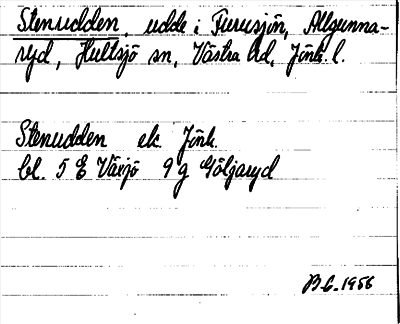 Stenudden, udde i Furusjön, Allgunna-
ryd, Hultsjö sn, Västra hd, Jönk. l.
Stenudden ek. Jönk.
bl. 5 E Växjö 9 g Göljaryd
B.G. 1956